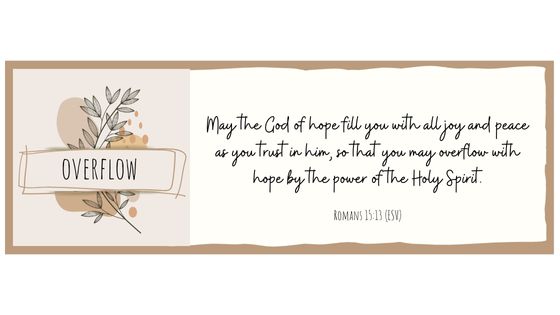 OVERFLOW
May the God of hope fill you with all joy and peace
as you trust in him, so that you may overflow with
hope by the power of the Holy Spirit.
Romans 15:13 (ESV)